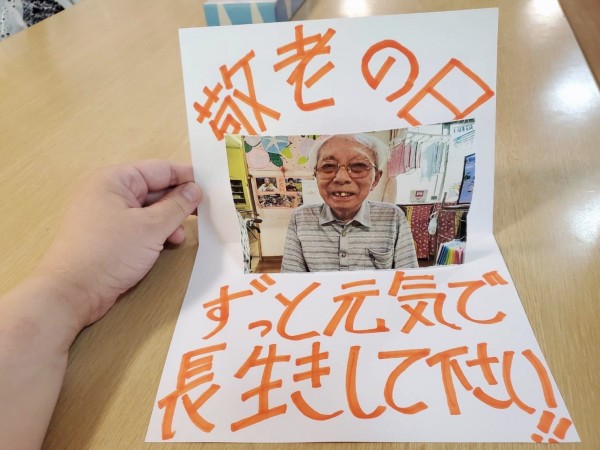 敬老の日
ずっと元気で
長生きして下さい!!